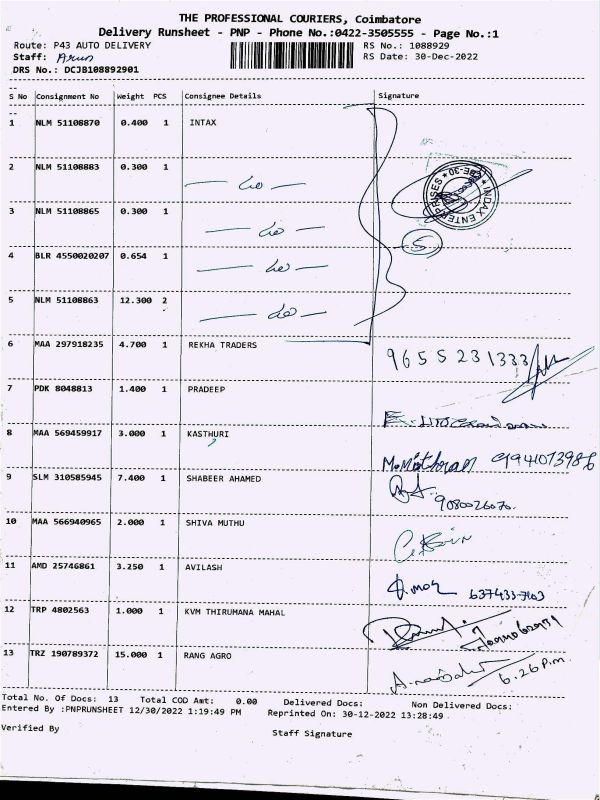 THE PROFESSIONAL COURIERS, Coimbatore
Delivery Runsheet - PNP - Phone No.:0422-3505555 - Page No.:1
Route: P43 AUTO DELIVERY RS No.: 1088929
Staff: Arun RS Date: 30-Dec-2022
DRS No.: DCJB108892901
S No Consignment No Weight PCS Consignee Details Signature
1 NLM 51108870 0.400 1 INTAX
2 NLM 51108883 0.300 1
INDAX ENTERPRISES * CBE-30 *
3 NLM 51108865 0.300 1
5
4 BLR 4550020207 0.654 1
5 NLM 51108863 12.300 2
6 MAA 297918235 4.700 1 REKHA TRADERS
9655231333
7 PDK 8048813 1.400 1 PRADEEP
8 MAA 569459917 3.000 1 KASTHURI
9 SLM 310585945 7.400 1 SHABEER AHAMED
9080026070
10 MAA 566940965 2.000 1 SHIVA MUTHU
11 AMD 25746861 3.250 1 AVILASH
12 TRP 4802563 1.000 1 KVM THIRUMANA MAHAL
13 TRZ 190789372 15.000 1 RANG AGRO
6.26 P.m.
Total No. Of Docs: 13 Total COD Amt: 0.00 Delivered Docs: Non Delivered Docs:
Entered By :PNPRUNSHEET 12/30/2022 1:19:49 PM Reprinted On: 30-12-2022 13:28:49
Verified By Staff Signature